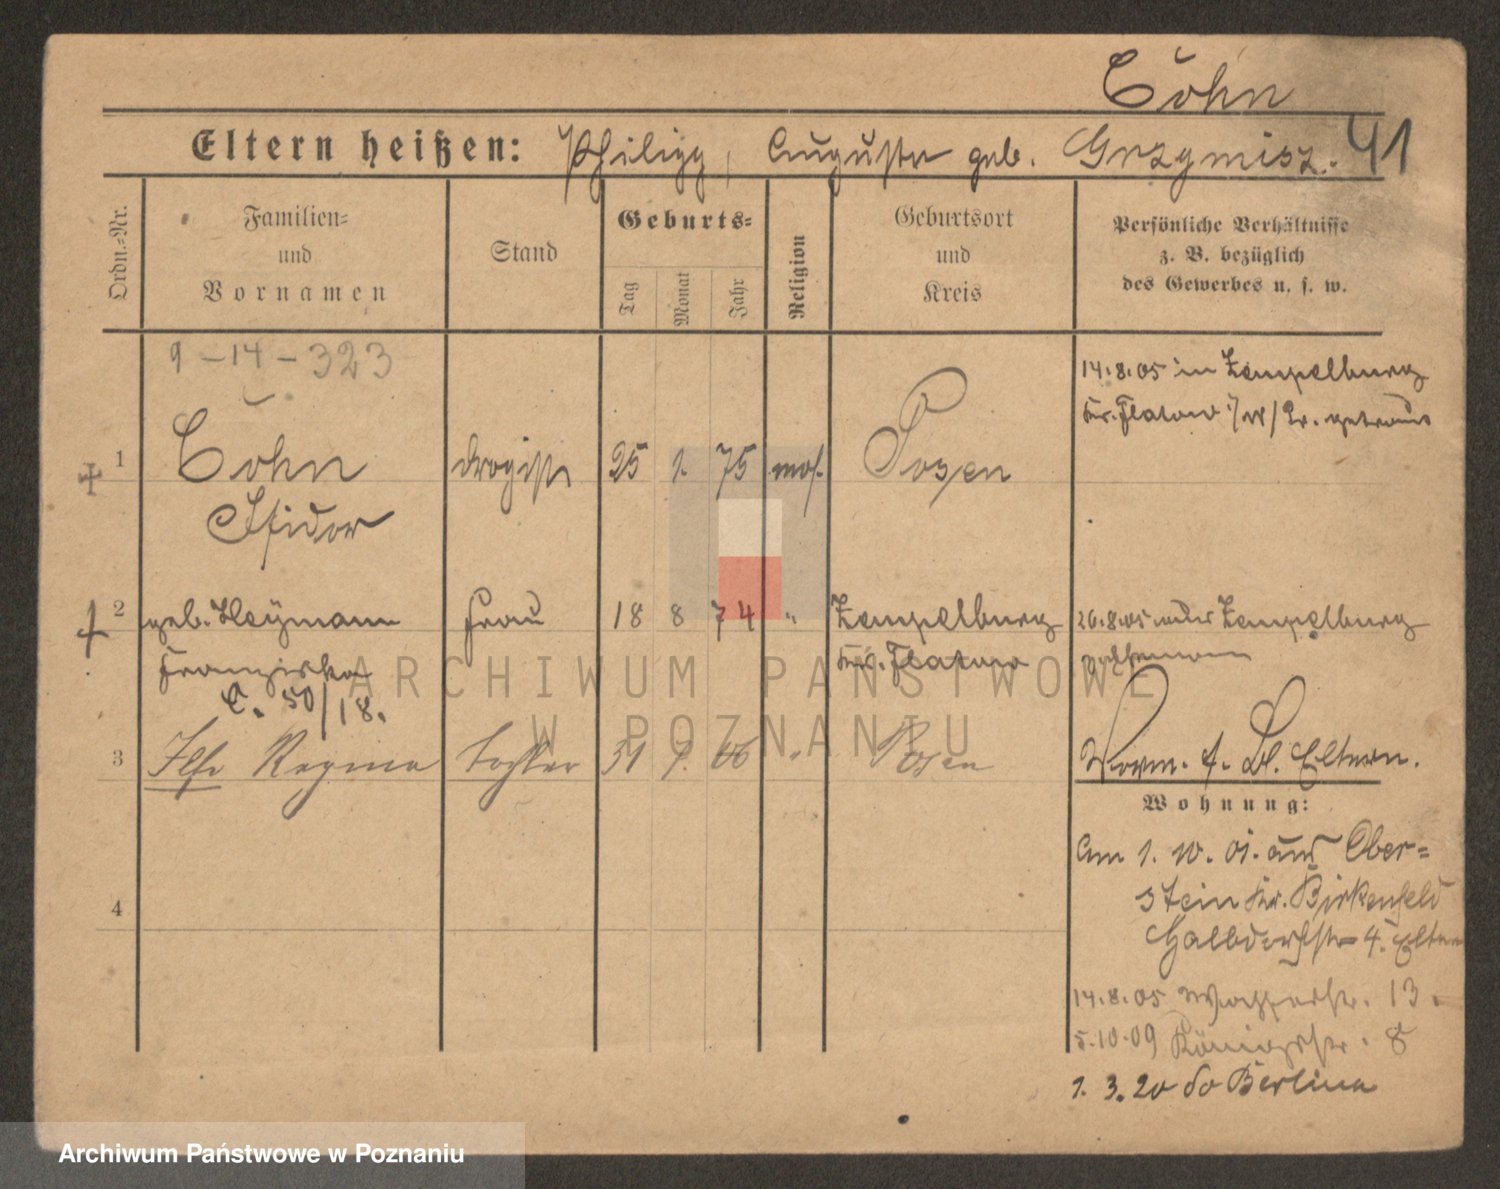 Cohn
41
Eltern heißen: Philipp, Auguste geb. Grzymisz.
Ordn.=Nr.
Familien=
und
Vornamen
Stand
Geburts=
Tag
Monat
Jahr
Religion
Geburtsort
und
Kreis
Persönliche Verhältnisse
z. B. bezüglich
des Gewerbes u. s. w.
9-14-323
14.8.05 in Zempelburg
Kr. Flatow getraut
1 Cohn Drogist 25 1. 75 mos. Posen
Isidor
2 geb. Heymann Frau 18 8 74 " Zempelburg
Franziska Kr. Flatow
C. 50/18.
26.8.05 Zempelburg
3 Ilse Regina Tochter 31 7. 06 " Posen
Worm. f. Bl. Eltern.
Wohnung:
Am 1. 10. 01. aus Ober=
stein Kr. Birkenfeld
4
Halbdorfstr 4. Eltern
14.8.05 13.
5.10.09 Königstr. 8
1. 3. 20 Berlin
ARCHIWUM PAŃSTWOWE
W POZNANIU
Archiwum Państwowe w Poznaniu